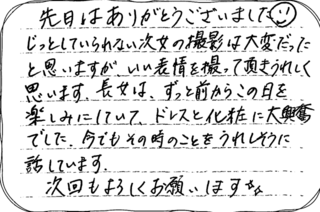 先日はありがとうございました
じっとしていられない次女の撮影は大変だった
と思いますが、いい表情を撮って頂きうれしく
思います。長女は、ずっと前からこの日を
楽しみにしていて、ドレスと化粧に大興奮
でした。今でもその時のことをうれしそうに
話しています。
次回もよろしくお願いします